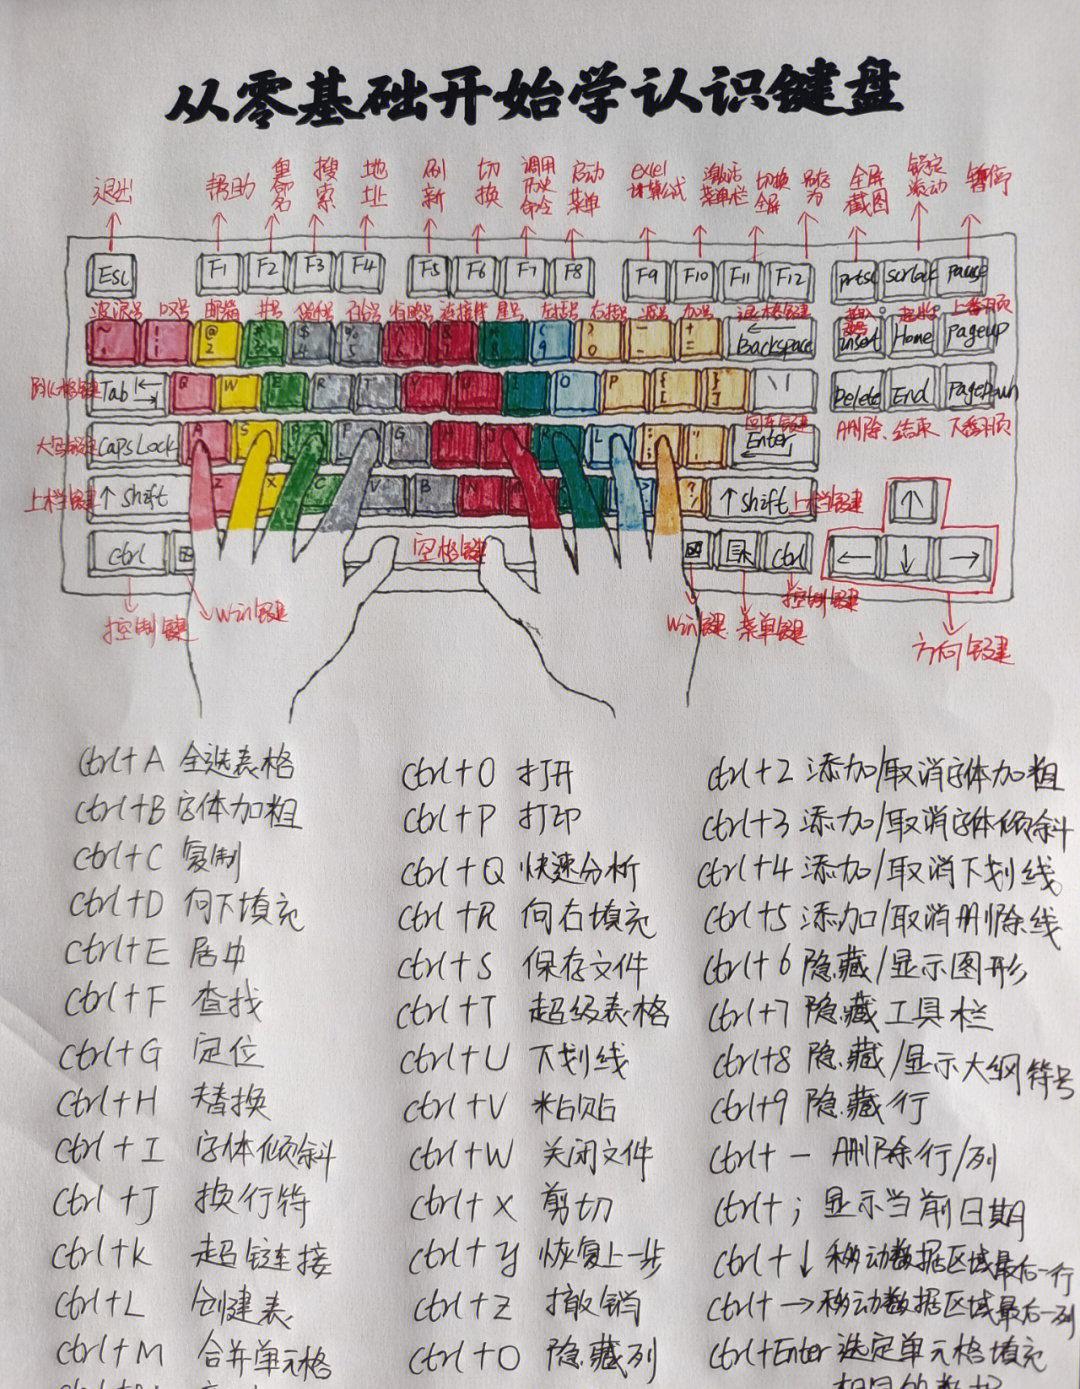 从零基础开始学认识键盘
退出 帮助 重命名 搜索 地址 刷新 切换 调用历史命令 启动菜单 excel计算公式 激活菜单栏 切换全屏 另存为 全屏截图 锁定滚动 暂停
Esc F1 F2 F3 F4 F5 F6 F7 F8 F9 F10 F11 F12 prtsc scrlock pause
波浪号 叹号 邮箱 井号 百分号 省略号 连接符 星号 左括号 右括号 减号 加号 退格键 上翻页
~ ! @ 2 # $ 4 % 5 ( 9 ) 0 - + = Backspace insert Home Pageup
Tab Q W E R T O P { [ } ] \ | Delete End PageDown
删除 结束 下翻页
大写锁定键 Caps Lock A S G L : ; 回车键 Enter
上档键 ↑ Shift Z X C V B ? / ↑ Shift 上档键 ↑
ctrl 空格键 ctrl ← ↓ →
控制键 Win键 Win键 菜单键 控制键 方向键
ctrl+A 全选表格
ctrl+B 字体加粗
ctrl+C 复制
ctrl+D 向下填充
ctrl+E 居中
ctrl+F 查找
ctrl+G 定位
ctrl+H 替换
ctrl+I 字体倾斜
ctrl+J 换行符
ctrl+k 超链接
ctrl+L 创建表
ctrl+M 合并单元格
ctrl+O 打开
ctrl+P 打印
ctrl+Q 快速分析
ctrl+R 向右填充
ctrl+S 保存文件
ctrl+T 超级表格
ctrl+U 下划线
ctrl+V 粘贴
ctrl+W 关闭文件
ctrl+X 剪切
ctrl+y 恢复上一步
ctrl+Z 撤销
ctrl+0 隐藏列
ctrl+2 添加/取消字体加粗
ctrl+3 添加/取消字体倾斜
ctrl+4 添加/取消下划线
ctrl+5 添加/取消删除线
ctrl+6 隐藏/显示图形
ctrl+7 隐藏工具栏
ctrl+8 隐藏/显示大纲符号
ctrl+9 隐藏行
ctrl+- 删除行/列
ctrl+; 显示当前日期
ctrl+↓ 移动数据区域最后一行
ctrl+→ 移动数据区域最后一列
ctrl+Enter 选定单元格填充
相同的数据